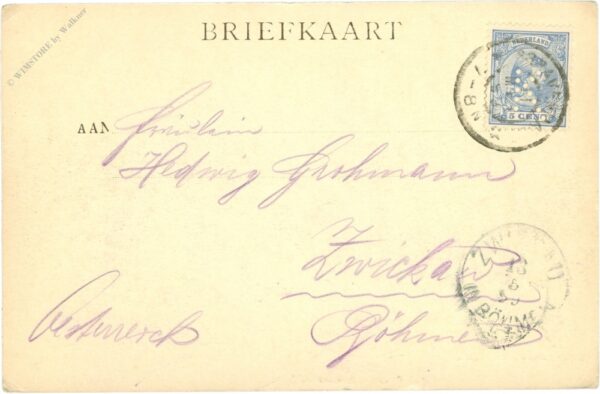 © WIMSTORE by Walkner
BRIEFKAART
NEDERLAND
5 CENT
AAN Fräulein
Hedwig Grohmann
Zwickau
Böhmen
Oesterreich